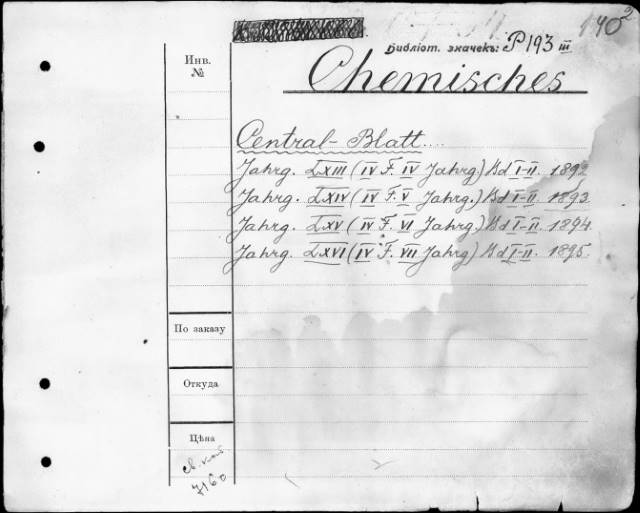 1402
Библіот. значекъ: P 193 III
Инв.
№
Chemisches
Central-Blatt....
Jahrg. LXIII (IV F. IV Jahrg.) Bd I-II. 1892
Jahrg. LXIV (IV F. V Jahrg.) Bd I-II. 1893.
Jahrg. LXV (IV F. VI Jahrg.) Bd I-II. 1894.
Jahrg. LXVI (IV F. VII Jahrg.) Bd I-II. 1895.
По заказу
Откуда
Цѣна
7160